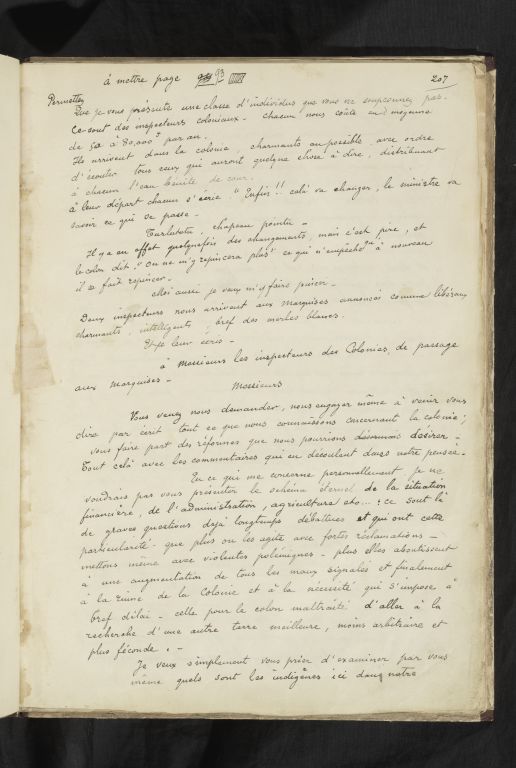 à mettre page 93
207
Permettez
Que je vous présente une classe d'individus que vous ne soupçonnez pas.
Ce sont des inspecteurs coloniaux. Chacun nous coûte en moyenne
de 50 à 80,000 f par an.
Ils arrivent dans la colonie, charmants au possible avec ordre
d'écouter tous ceux qui auront quelque chose à dire, distribuant
à chacun l'eau bénite de cour.
à leur départ chacun s'écrie. "Enfin!! celà va changer, le ministre va
savoir ce qui se passe -
Turlututu, chapeau pointu -
Il y a en effet quelquefois des changements, mais c'est pire, et
le colon dit: "On ne m'y repincera plus" ce qui n'empêche qu'à nouveau
il se fait repincer -
Moi aussi je veux m'y faire pincer -
Deux inspecteurs nous arrivent aux Marquises annoncés comme libéraux
charmants, intelligents, bref des merles blancs.
Et je leur écris -
à Messieurs les inspecteurs des Colonies, de passage
aux Marquises -
Messieurs
Vous venez nous demander, nous engager même à venir vous
dire par écrit tout ce que nous connaissons concernant la colonie;
vous faire part des réformes que nous pourrions désormais désirer -
Tout celà avec les commentaires qui en découlent dans notre pensée -
En ce qui me concerne personnellement je ne
voudrais pas vous présenter le schéma éternel de la situation
financière, de l'administration, agriculture etc... : ce sont là
de graves questions déjà longtemps débattues et qui ont cette
particularité que plus on les agite avec fortes réclamations -
mettons même avec violentes polémiques - plus elles aboutissent
à une augmentation de tous les maux signalés et finalement
à la ruine de la Colonie et à la nécessité qui s'impose à
bref délai - celle pour le colon maltraité d'aller à la
recherche d'une autre terre meilleure, moins arbitraire et
plus féconde. -
Je veux simplement vous prier d'examiner par vous
même quels sont les indigènes ici dans notre